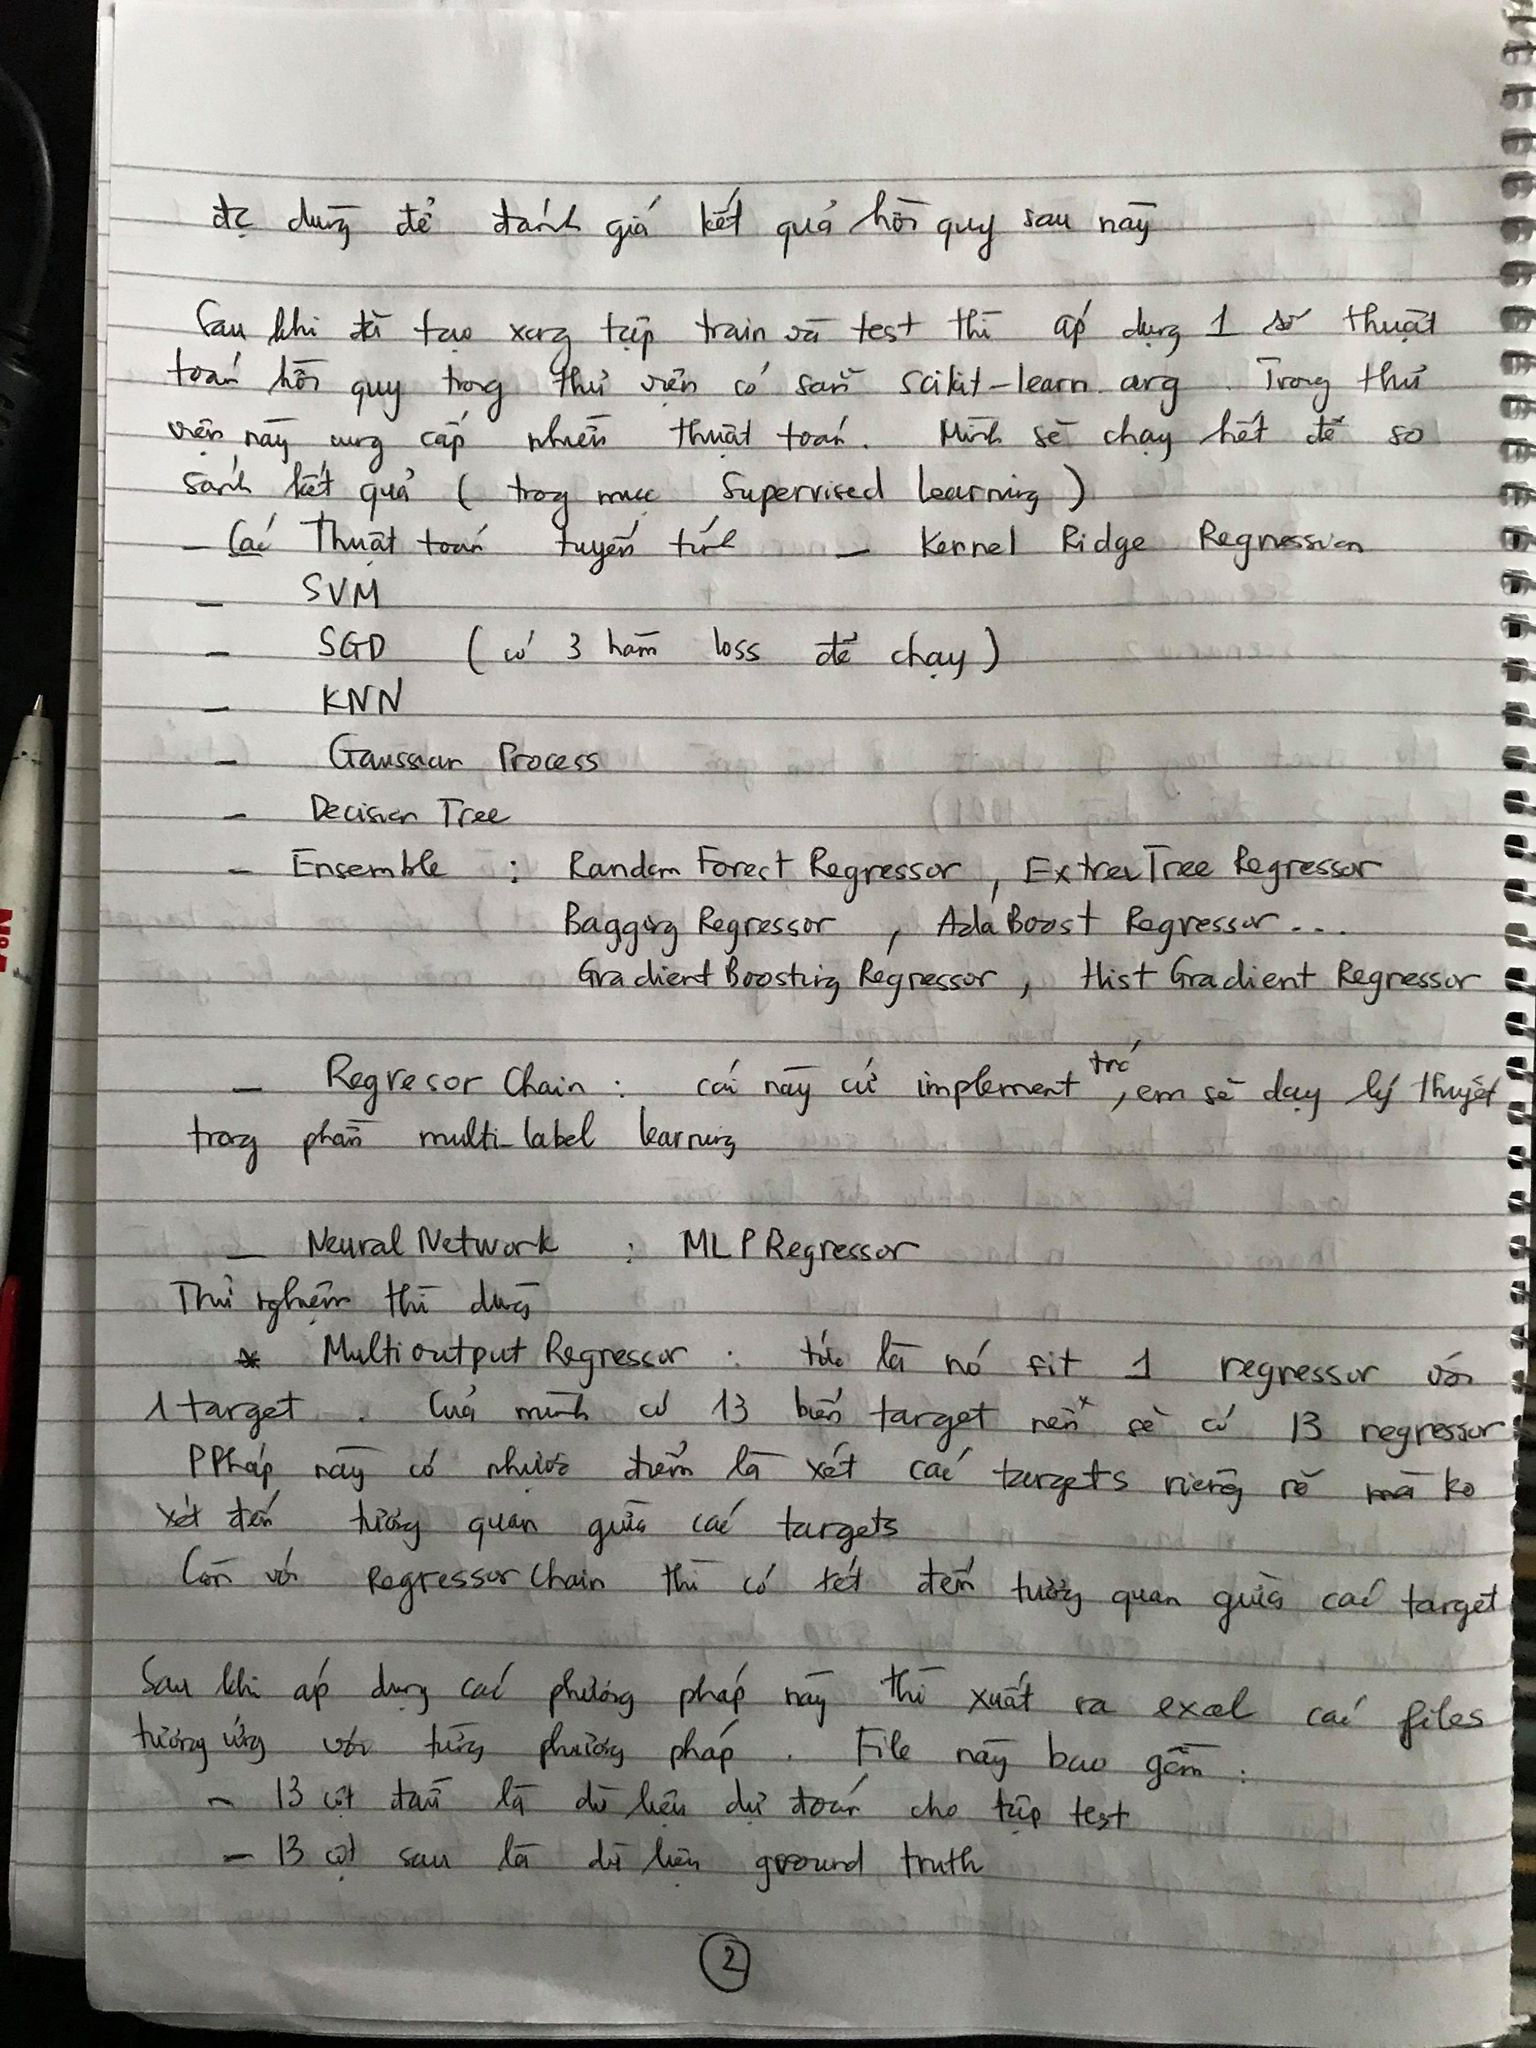 đc dùng để đánh giá kết quả hồi quy sau này
Sau khi đã tạo xong tập train và test thì áp dụng 1 số thuật
toán hồi quy trong thư viện có sẵn scikit-learn.org. Trong thư
viện này cung cấp nhiều thuật toán. Mình sẽ chạy hết để so
sánh kết quả ( trong mục Supervised Learning )
- Các Thuật toán tuyến tính - Kernel Ridge Regression
- SVM
- SGD ( có 3 hàm loss để chạy )
- KNN
- Gaussian Process
- Decision Tree
- Ensemble : Random Forest Regressor, Extra Tree Regressor
Bagging Regressor , AdaBoost Regressor ...
Gradient Boosting Regressor, Hist Gradient Regressor
- Regresor Chain : cái này cứ implement trc, em sẽ dạy lý thuyết
trong phần multi-label learning
- Neural Network : MLP Regressor
Thử nghiệm thì dùng
* Multioutput Regressor : tức là nó fit 1 regressor với
1 target . Của mình có 13 biến target nên sẽ có 13 regressor
PPháp này có nhược điểm là xét các targets riêng rẽ mà ko
xét đến tương quan giữa các targets
Còn với RegressorChain thì có xét đến tương quan giữa các target
Sau khi áp dụng các phương pháp này thì xuất ra excel các files
tương ứng với từng phương pháp . File này bao gồm :
- 13 cột đầu là dữ liệu dự đoán cho tập test
- 13 cột sau là dữ liệu ground truth
2